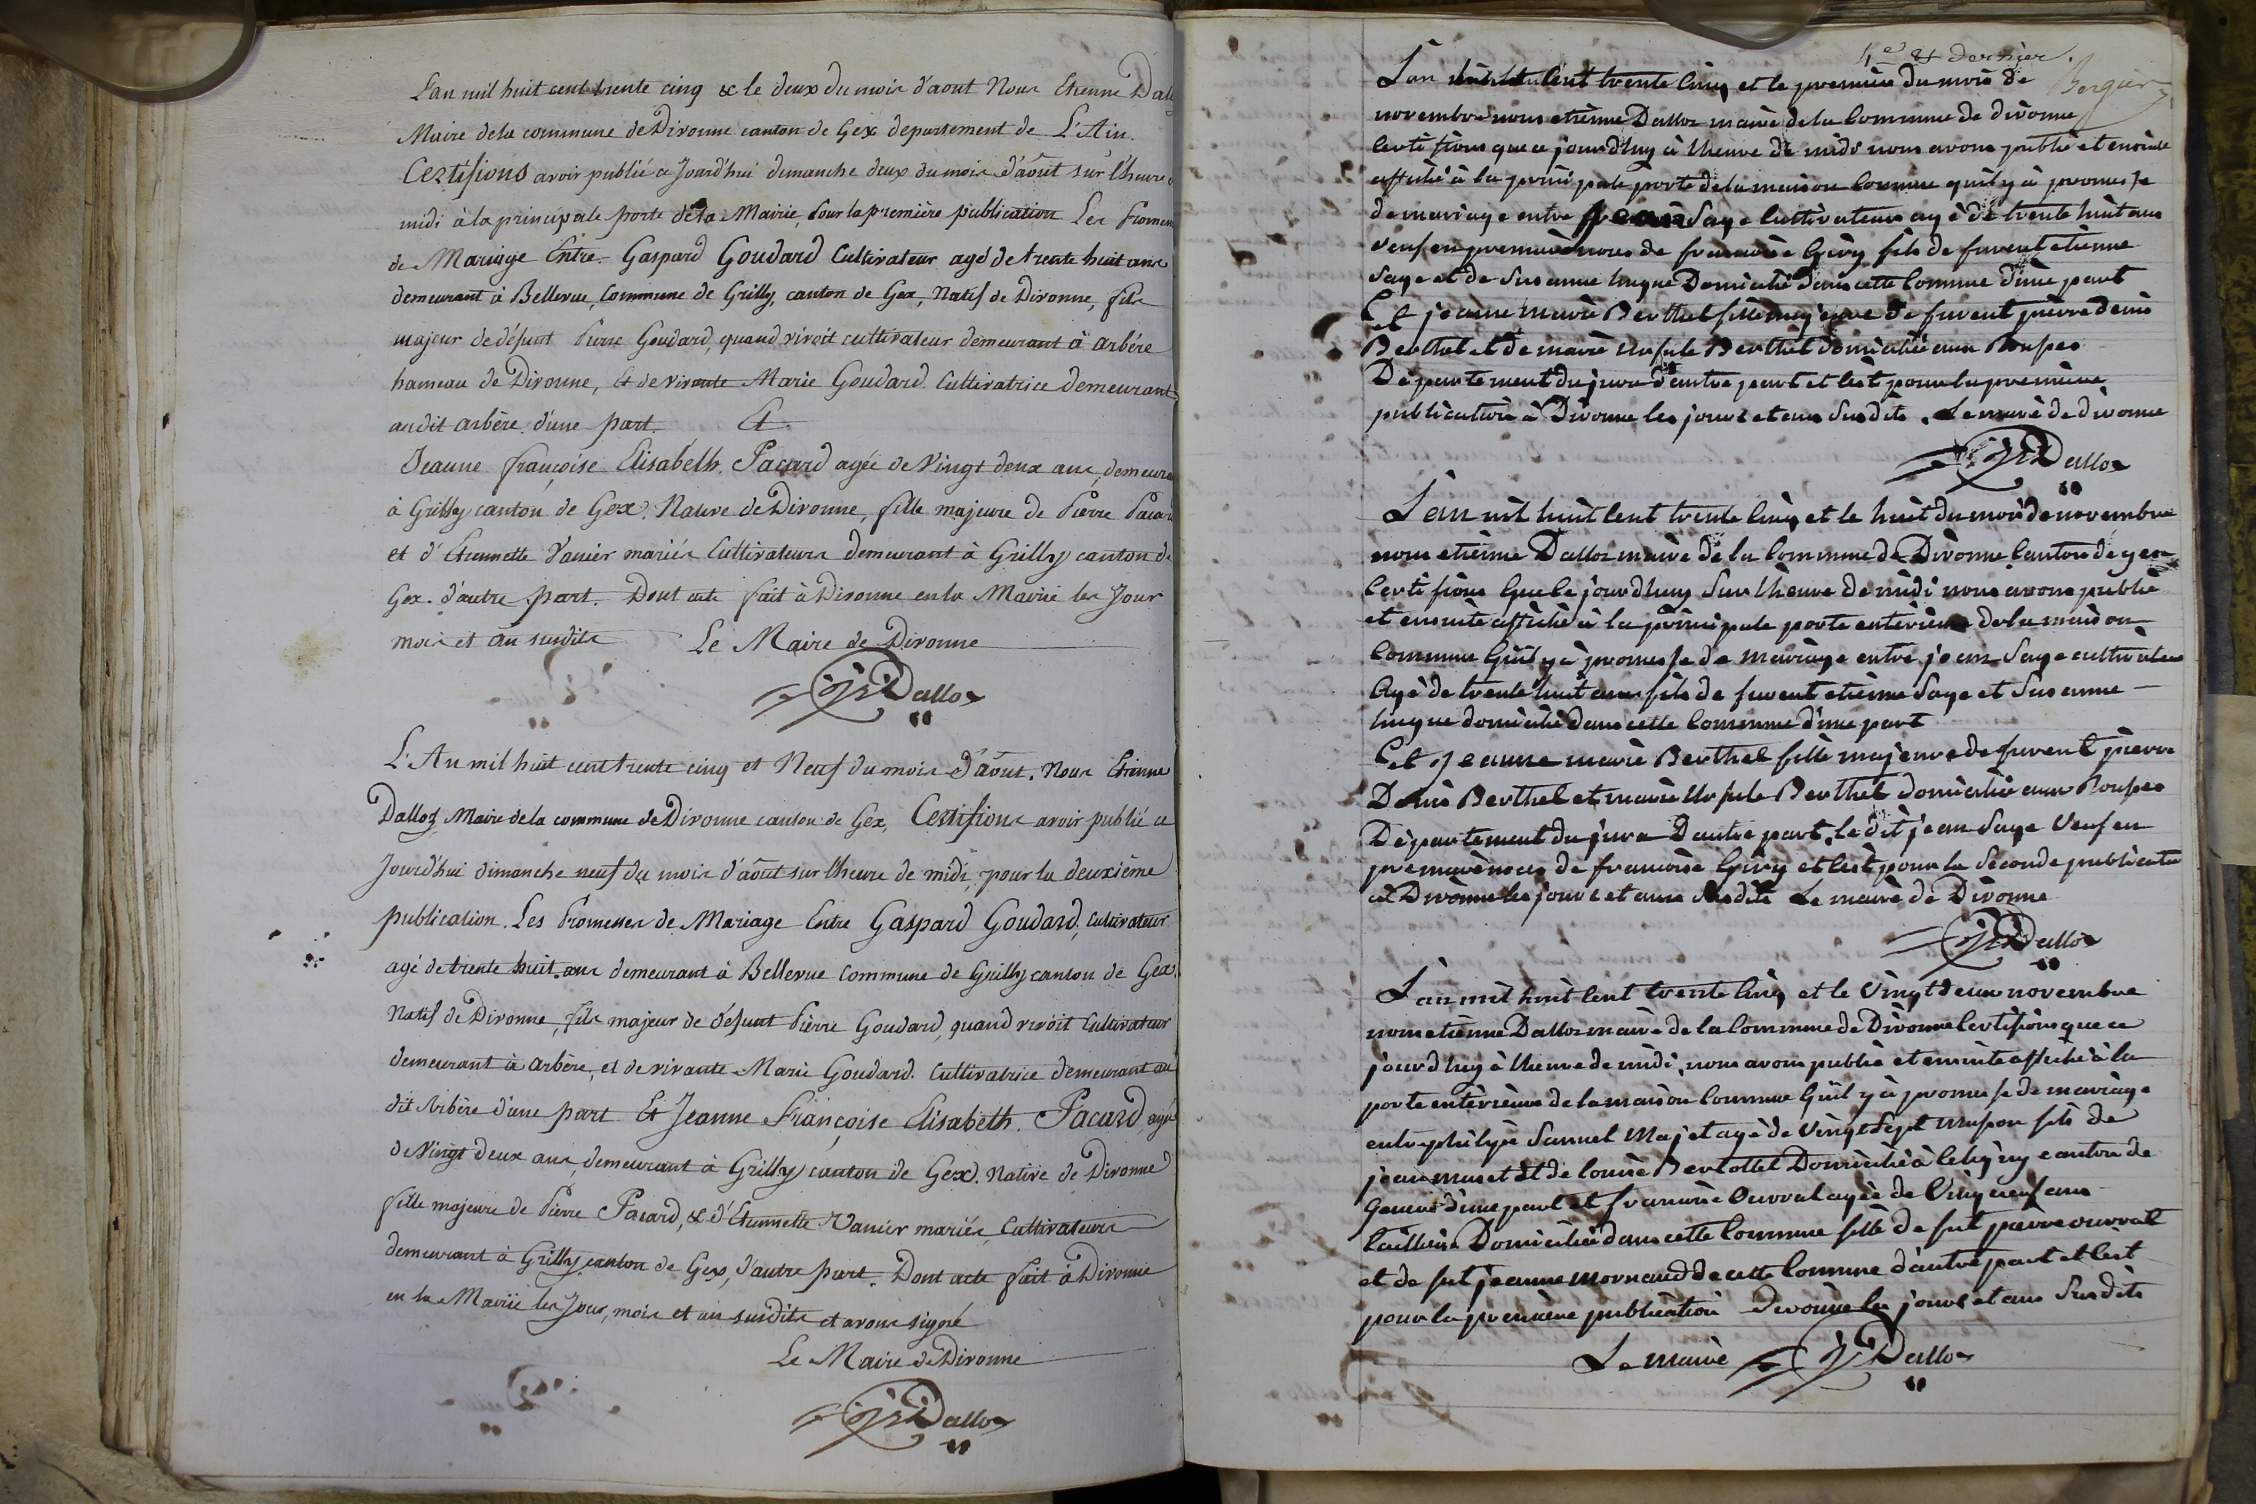 L'an mil huit cent trente cinq & le deux du mois d'aout Nous Etienne Dall
Maire de la commune de Divonne canton de Gex departement de L'Ain.
Certifions avoir publié ce Jourd'hui dimanche deux du mois d'août sur l'heure
midi à la principale porte de la Mairie, pour la première publication Les Promess
de Mariage Entre Gaspard Goudard Cultivateur agé de trente huit ans
demeurant à Bellevue, Commune de Grilly, canton de Gex, Natif de Divonne, fils
majeur de défunt Pierre Goudard, quand vivoit cultivateur demeurant à arbére
hameau de Divonne, et de vivante Marie Goudard Cultivatrice demeurant
audit arbère d'une part. Et
Jeanne françoise Elisabeth Pacard agée de Vingt deux ans, demeuran
à Grilly canton de Gex. Native de Divonne, fille majeure de Pierre Pacard
et d'Etiennette Vanier mariés Cultivateurs demeurant à Grilly canton de
Gex. d'autre part. Dont acte fait à Divonne en la Mairie les Jour
mois et an susdits Le Maire de Divonne
Dalloz
L'An mil huit cent trente cinq et Neuf du mois d'août. Nous Etienne
Dalloz Maire de la commune de Divonne canton de Gex, Certifions avoir publié ce
Jourd'hui dimanche neuf du mois d'août sur l'heure de midi, pour la deuxième
publication. Les Promesses de Mariage Entre Gaspard Goudard, Cultivateur
agé de trente huit ans demeurant à Bellevue Commune de Grilly canton de Gex,
Natif de Divonne, fils majeur de défunt Pierre Goudard, quand vivoit Cultivateur
demeurant à arbère, et de vivante Marie Goudard. Cultivatrice demeurant au
dit Arbère d'une part Et Jeanne Françoise Elisabeth Pacard, agée
de Vingt deux ans, demeurant à Grilly canton de Gex. Native de Divonne
fille majeure de Pierre Pacard, & d'Etiennette Vanier mariés, Cultivateurs
demeurant à Grilly canton de Gex, d'autre part. Dont acte fait à Divonne
en la Mairie les Jour, mois et an susdits et avons signé
Le Maire de Divonne
Dalloz
4e et dernier
Bergier
L'an mil huit cent trente cinq et le premier du mois de
novembre nous etienne Dalloz maire de la Commune de divonne
Certifions que ce jourd'huy à l'heure de midi nous avons publié et ensuite
affiché à la principale porte de la maison Commune quil y à promesse
de mariage entre jean Sage Cultivateur agé de trente huit ans
veuf en premiere noces de francoise Giry fils de furent etienne
Sage et de Susanne Domicilié dans cette Commune d'une part
Et jeanne marie Berthet fille majeure de furent pierre denis
Berthet et de marie Ursule Berthet domiciliée aux Rousses
Département du jura d'autre part et C'est pour la premiere
publication à Divonne les jours et ans Susdits. Le maire de divonne
Dalloz
L'an mil huit Cent trente Cinq et le huit du mois de novembre
nous etienne Dalloz maire de la Commune de Divonne Canton de gex
Certifions que Ce jourd'huy Sur l'heure de midi nous avons publié
et ensuite affiché à la principale porte entérieure de la maison
Commune Quil y à promesse de mariage entre jean Sage cultivateur
Agé de trente huit ans fils de furent etienne Sage et Susanne
domicilié dans cette Commune d'une part
Et Jeanne marie Berthet fille majeure de furent pierre
Denis Berthet et marie Ursule Berthet domiciliée aux Rousses
Département du jura D'autre part, le dit jean Sage Veuf en
premiere noces de francoise Giry et C'est pour la Seconde publication
à Divonne les jours et ans Susdits Le maire de Divonne
Dalloz
L'an mil huit Cent trente Cinq et le Vingt deux novembre
nous etienne Dalloz maire de la Commune de Divonne Certifions que ce
jourd'huy à l'heure de midi, nous avons publié et ensuite affiché à la
porte entérieure de la maison Commune Quil y à promesse de mariage
entre philipe Samuel agé de Vingt Sept fils de
jean et de louise Domicilié à canton de
Geneve d'une part et francoise ouvrat agée de Vingt neuf ans
Domiciliée dans cette Commune fille de feu pierre ouvrat
et de feu jeanne de cette Commune d'autre part et C'est
pour la premiere publication Divonne les jours et ans Susdits
Le maire Dalloz